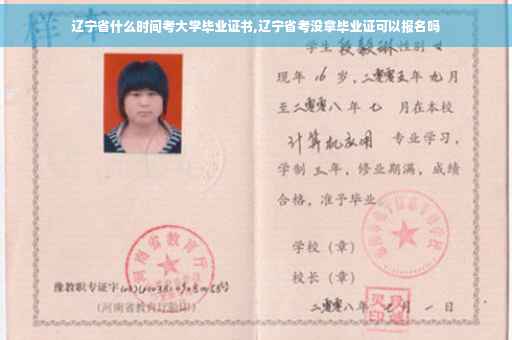 辽宁省什么时间考大学毕业证书,辽宁省考没章毕业证可以报名吗
样本
学生段毅琳性别女
现年16岁,二零零五年九月
至二零零八年七月在本校
计算机应用 专业学习,
学制三年,修业期满,成绩
合格,准予毕业
学校(章)
校长(章)
二零零八年七月一日
河南省教育厅
豫教职专证字
(河南省教育厅验印)